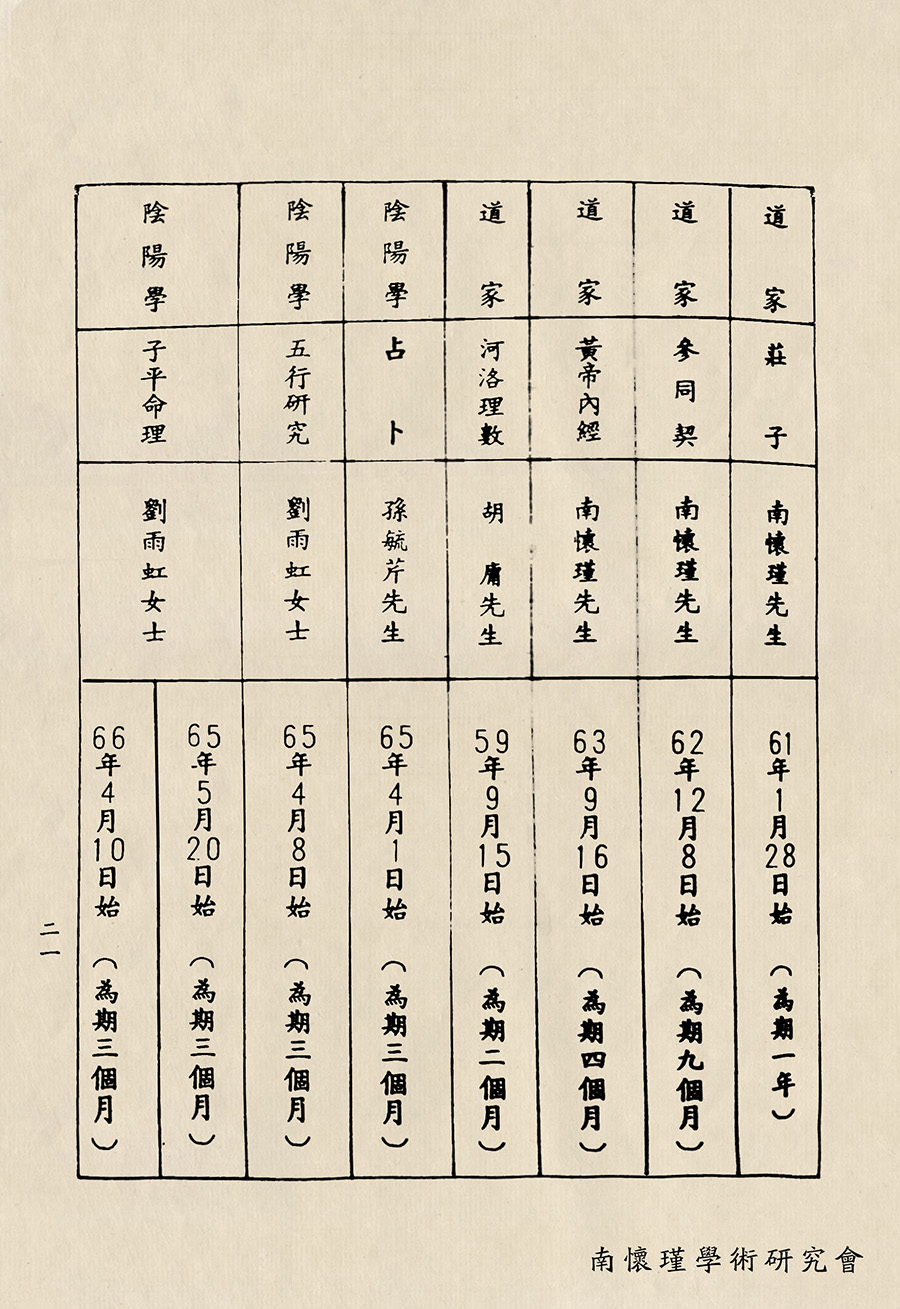 道家
莊子
南懷瑾先生
61年1月28日始（為期一年）
道家
參同契
南懷瑾先生
62年12月8日始（為期九個月）
道家
黃帝內經
南懷瑾先生
63年9月16日始（為期四個月）
道家
河洛理數
胡庸先生
59年9月15日始（為期二個月）
陰陽學
占卜
孫毓芹先生
65年4月1日始（為期三個月）
陰陽學
五行研究
劉雨虹女士
65年4月8日始（為期三個月）
陰陽學
子平命理
劉雨虹女士
65年5月20日始（為期三個月）
66年4月10日始（為期三個月）
二一
南懷瑾學術研究會